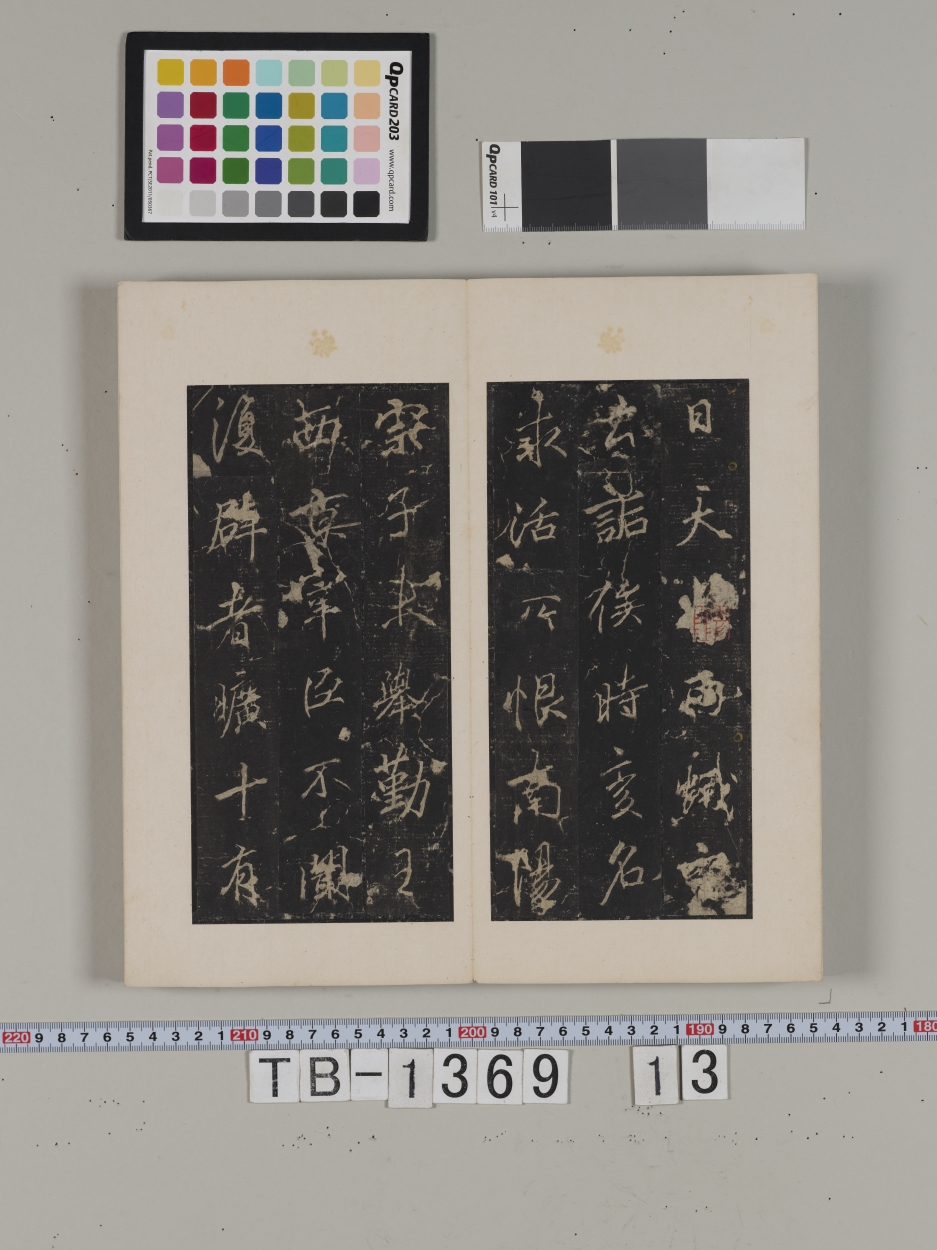 QpCARD 203
www.qpcard.com
QpCARD 101 v4
日天再
詰俟時變名
求活所恨南陽
宗子未舉勤王
西京宰臣不聞
復辟者曠十有
220 9 8 7 6 5 4 3 2 1 210 9 8 7 6 5 4 3 2 1 200 9 8 7 6 5 4 3 2 1 190 9 8 7 6 5 4 3 2 1 180
TB-1369 13